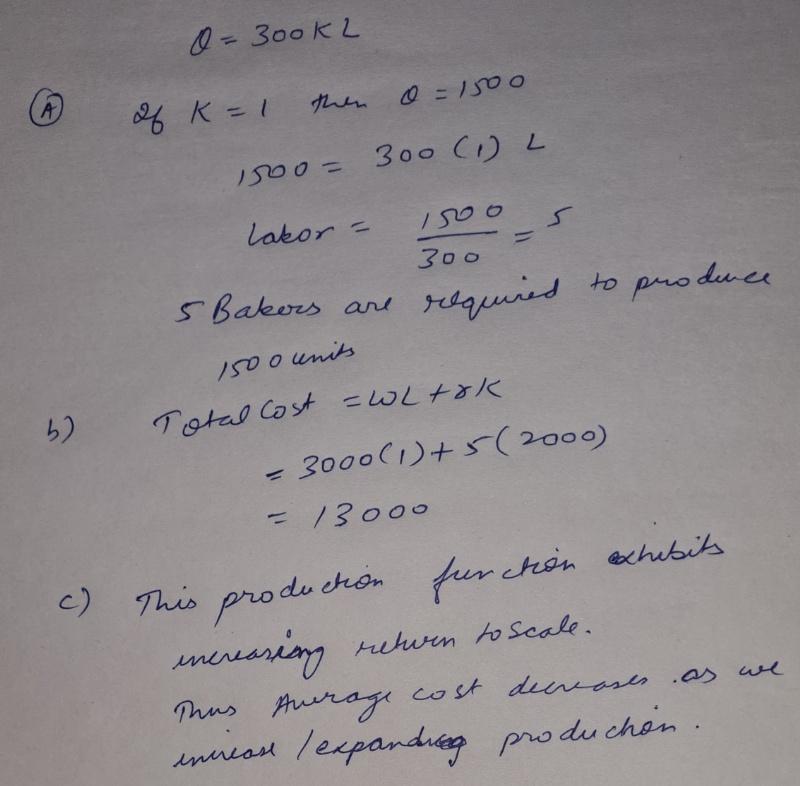 Q = 300KL
(A) If K = 1 then Q = 1500
1500 = 300 (1) L
labor = 1500/300 = 5
5 Bakers are required to produce
1500 units
b) Total Cost = wL + rK
= 3000(1) + 5(2000)
= 13000
c) This production function exhibits
increasing return to scale.
Thus Average cost decreases as we
increase / expanding production.